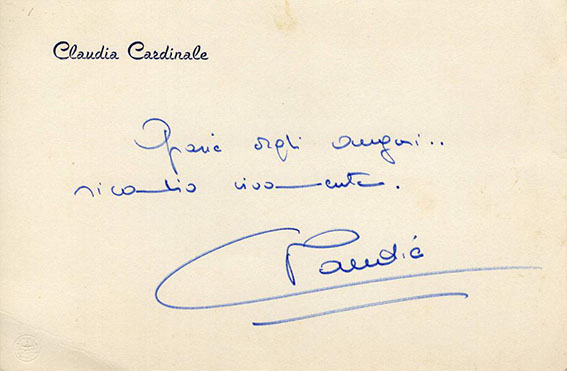 Claudia Cardinale
Grazie degli auguri..
ricambio vivamente.
Claudia